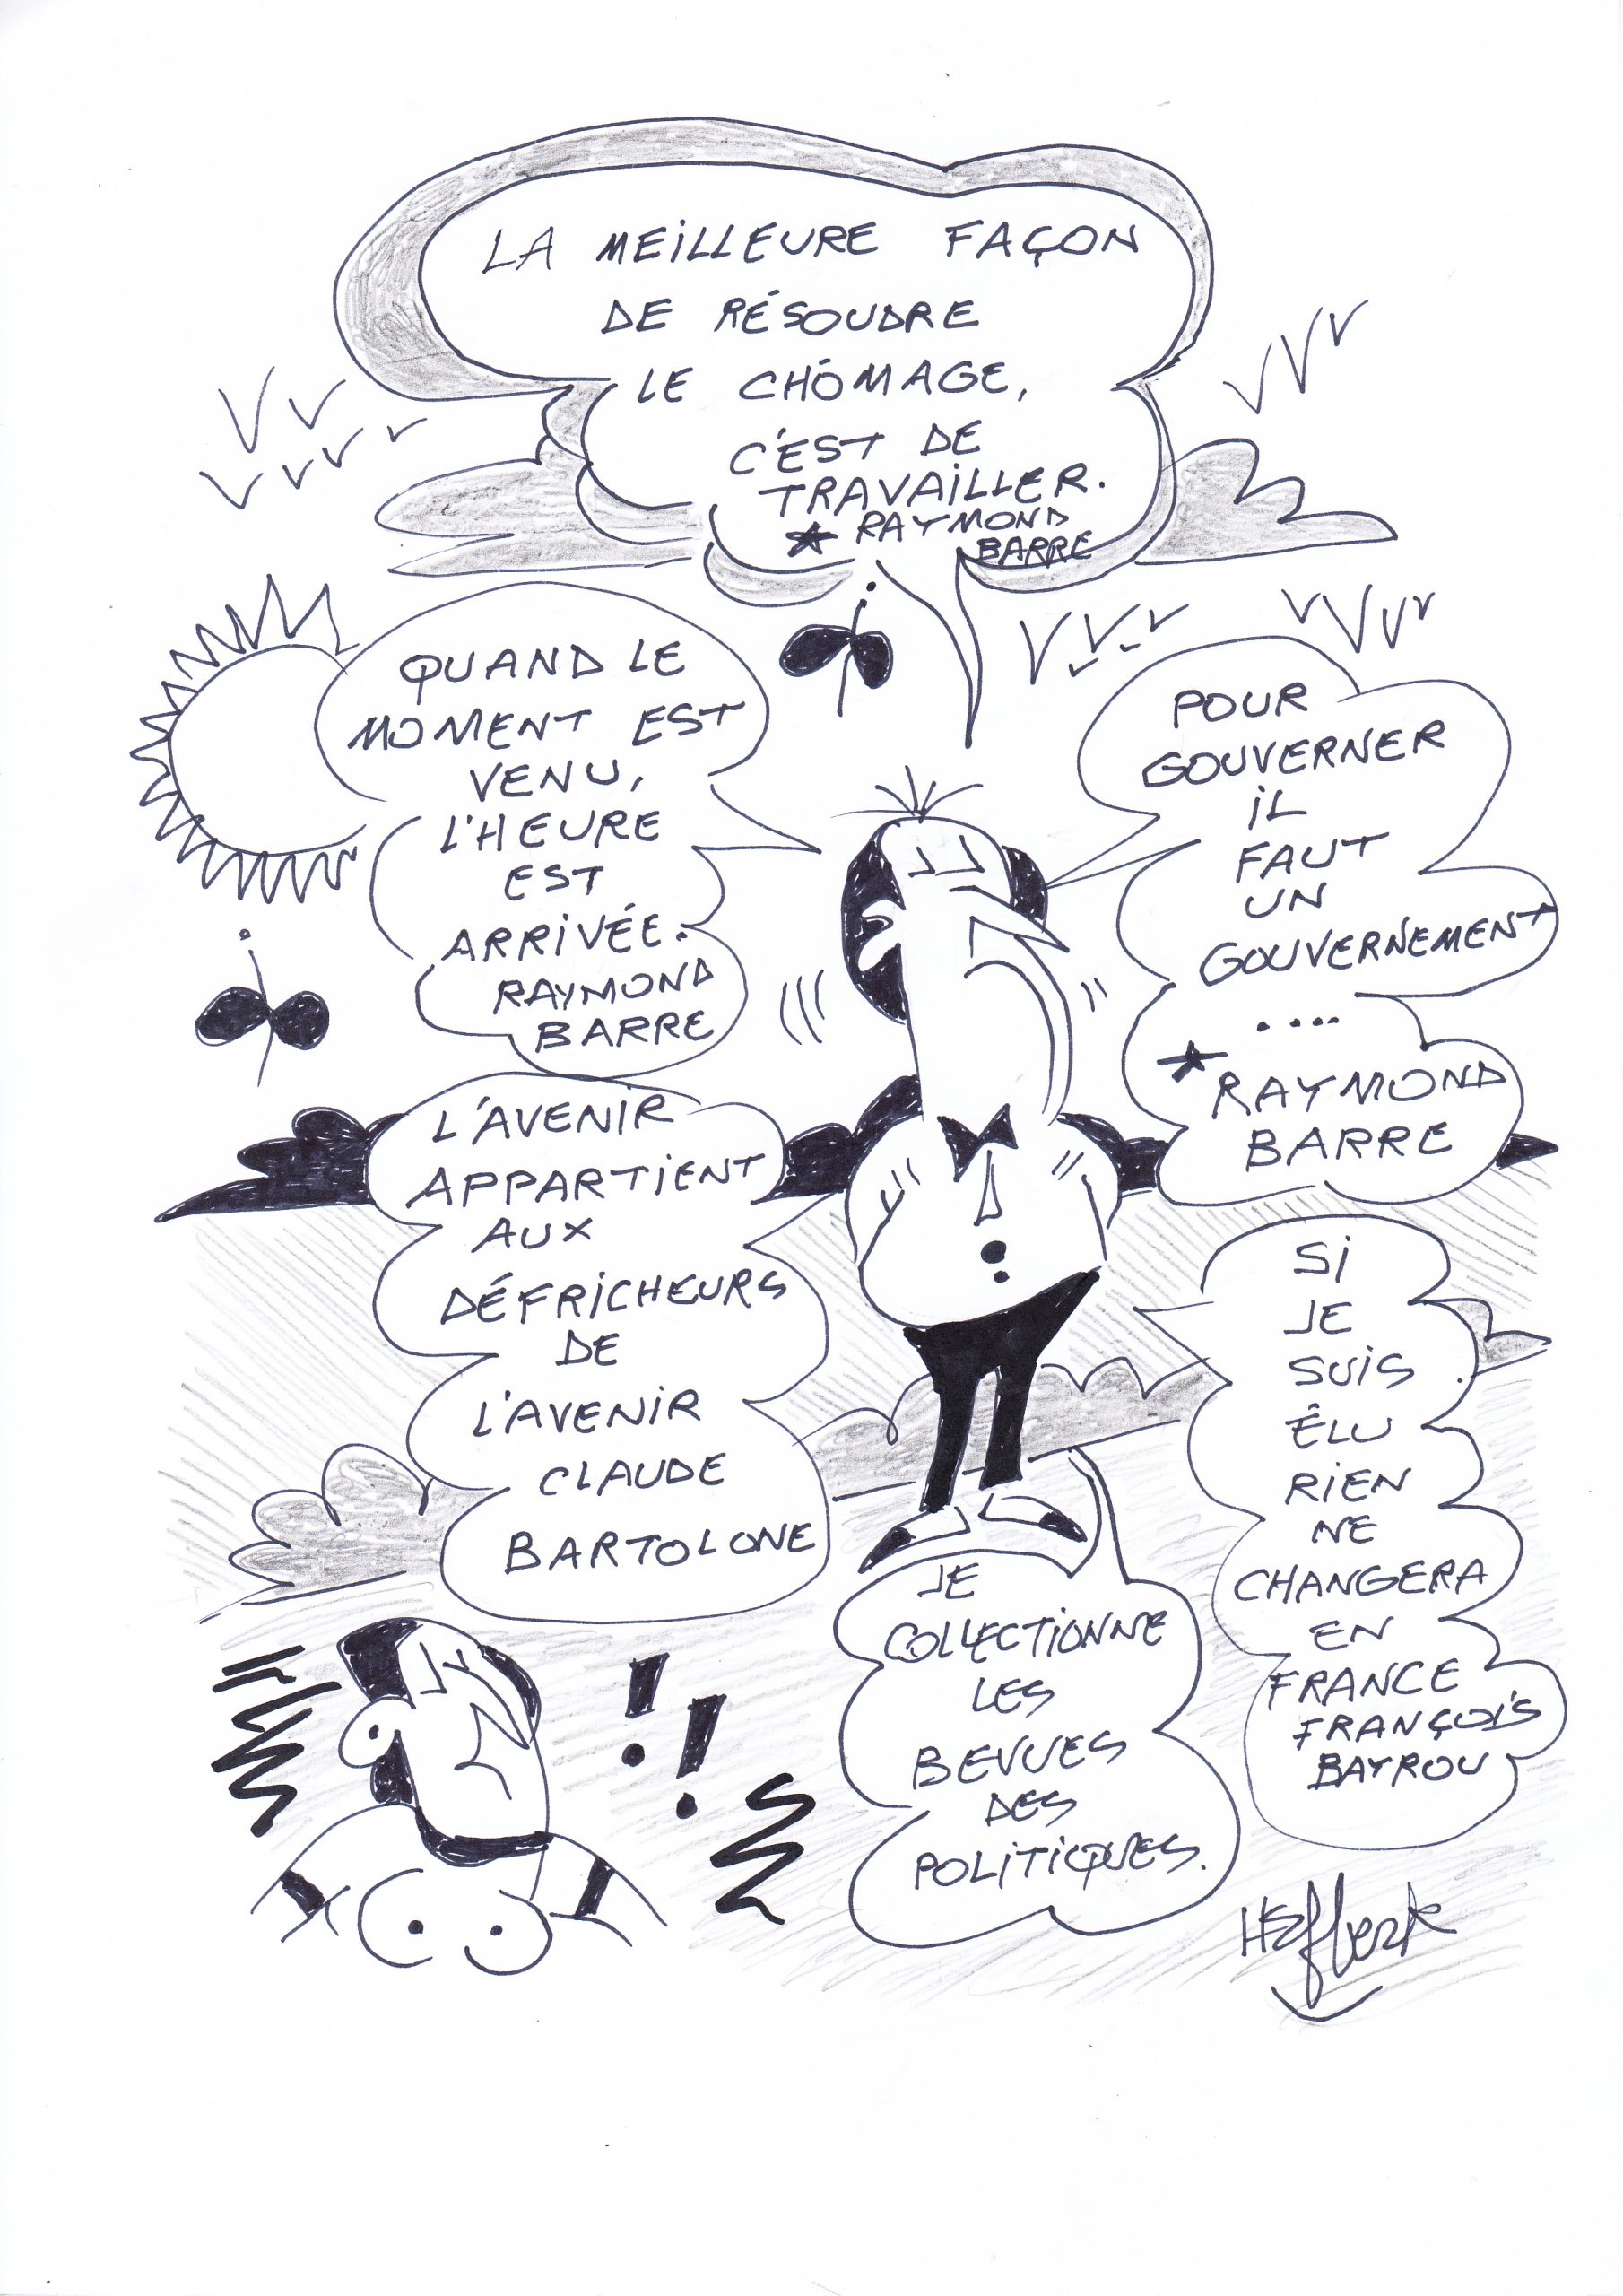 LA MEILLEURE FAÇON
DE RÉSOUDRE
LE CHÔMAGE,
C'EST DE
TRAVAILLER.
RAYMOND
BARRE
QUAND LE
MOMENT EST
VENU,
L'HEURE
EST
ARRIVÉE.
RAYMOND
BARRE
POUR
GOUVERNER
IL
FAUT
UN
GOUVERNEMENT
....
RAYMOND
BARRE
L'AVENIR
APPARTIENT
AUX
DÉFRICHEURS
DE
L'AVENIR
CLAUDE
BARTOLONE
SI
JE
SUIS
ÉLU
RIEN
NE
CHANGERA
EN
FRANCE
FRANÇOIS
BAYROU
JE
COLLECTIONNE
LES
BEVUES
DES
POLITIQUES.
!!